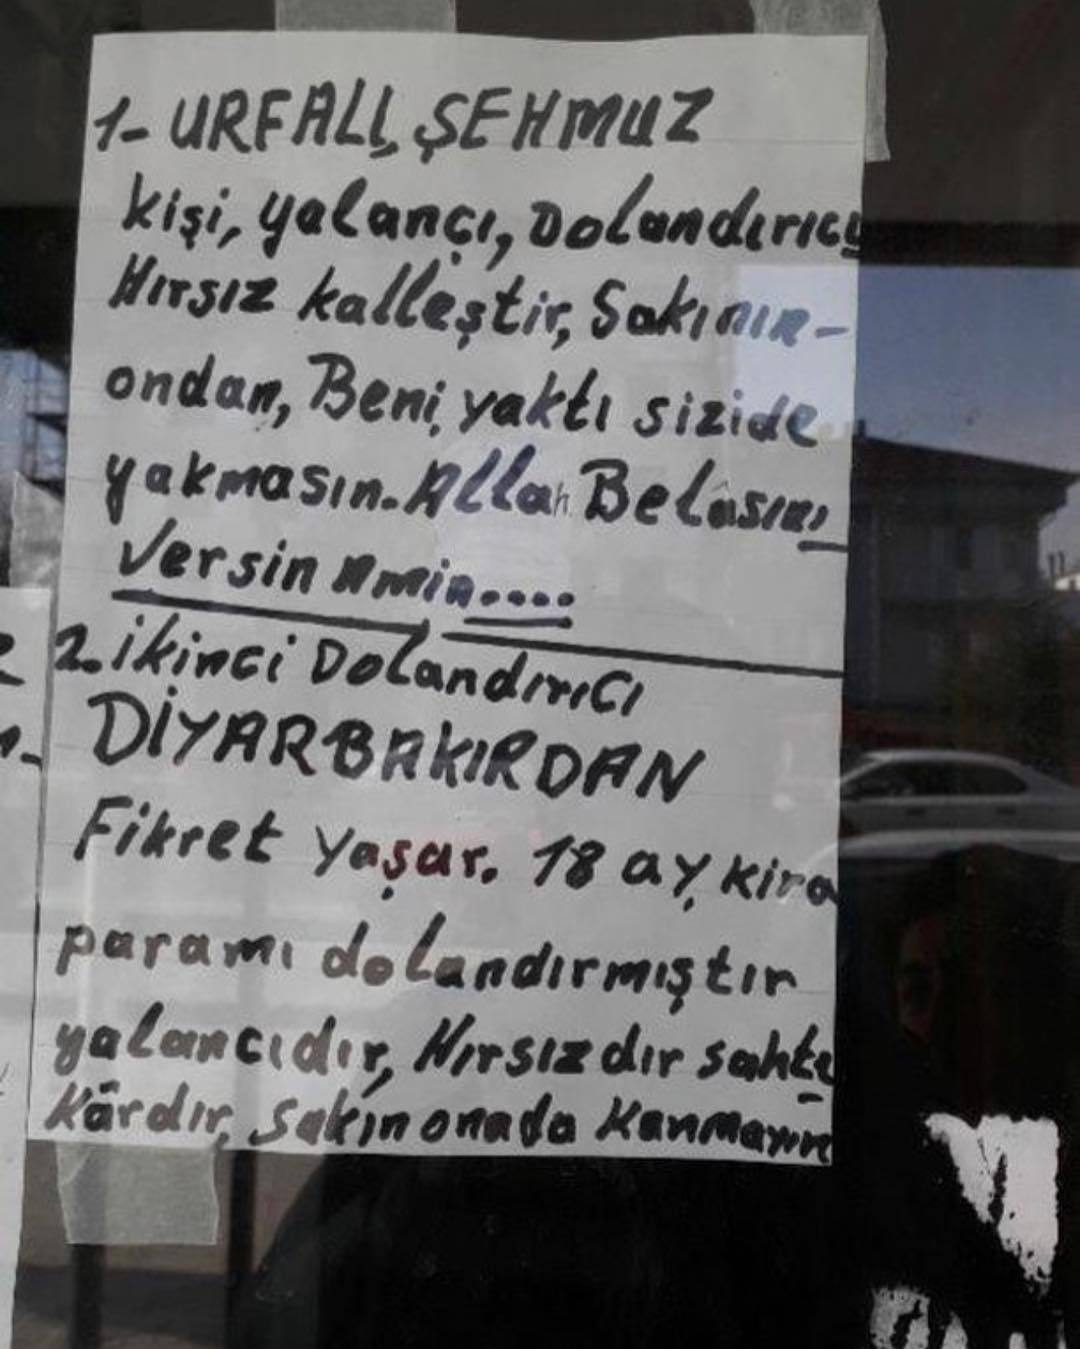 1- URFALI, ŞEHMUZ
kişi, yalançı, Dolandırıcı
Hırsız kalleştir, Sakının-
ondan, Beni, yaktı sizide
yakmasın. Allah Belâsını
Versin Amin....
2. ikinci Dolandırıcı
DİYARBAKIRDAN
Fikret Yaşar. 18 ay, kira
paramı dolandırmıştır
yalancıdır, Hırsızdır sahte
Kârdır, sakın onada Kanmayın